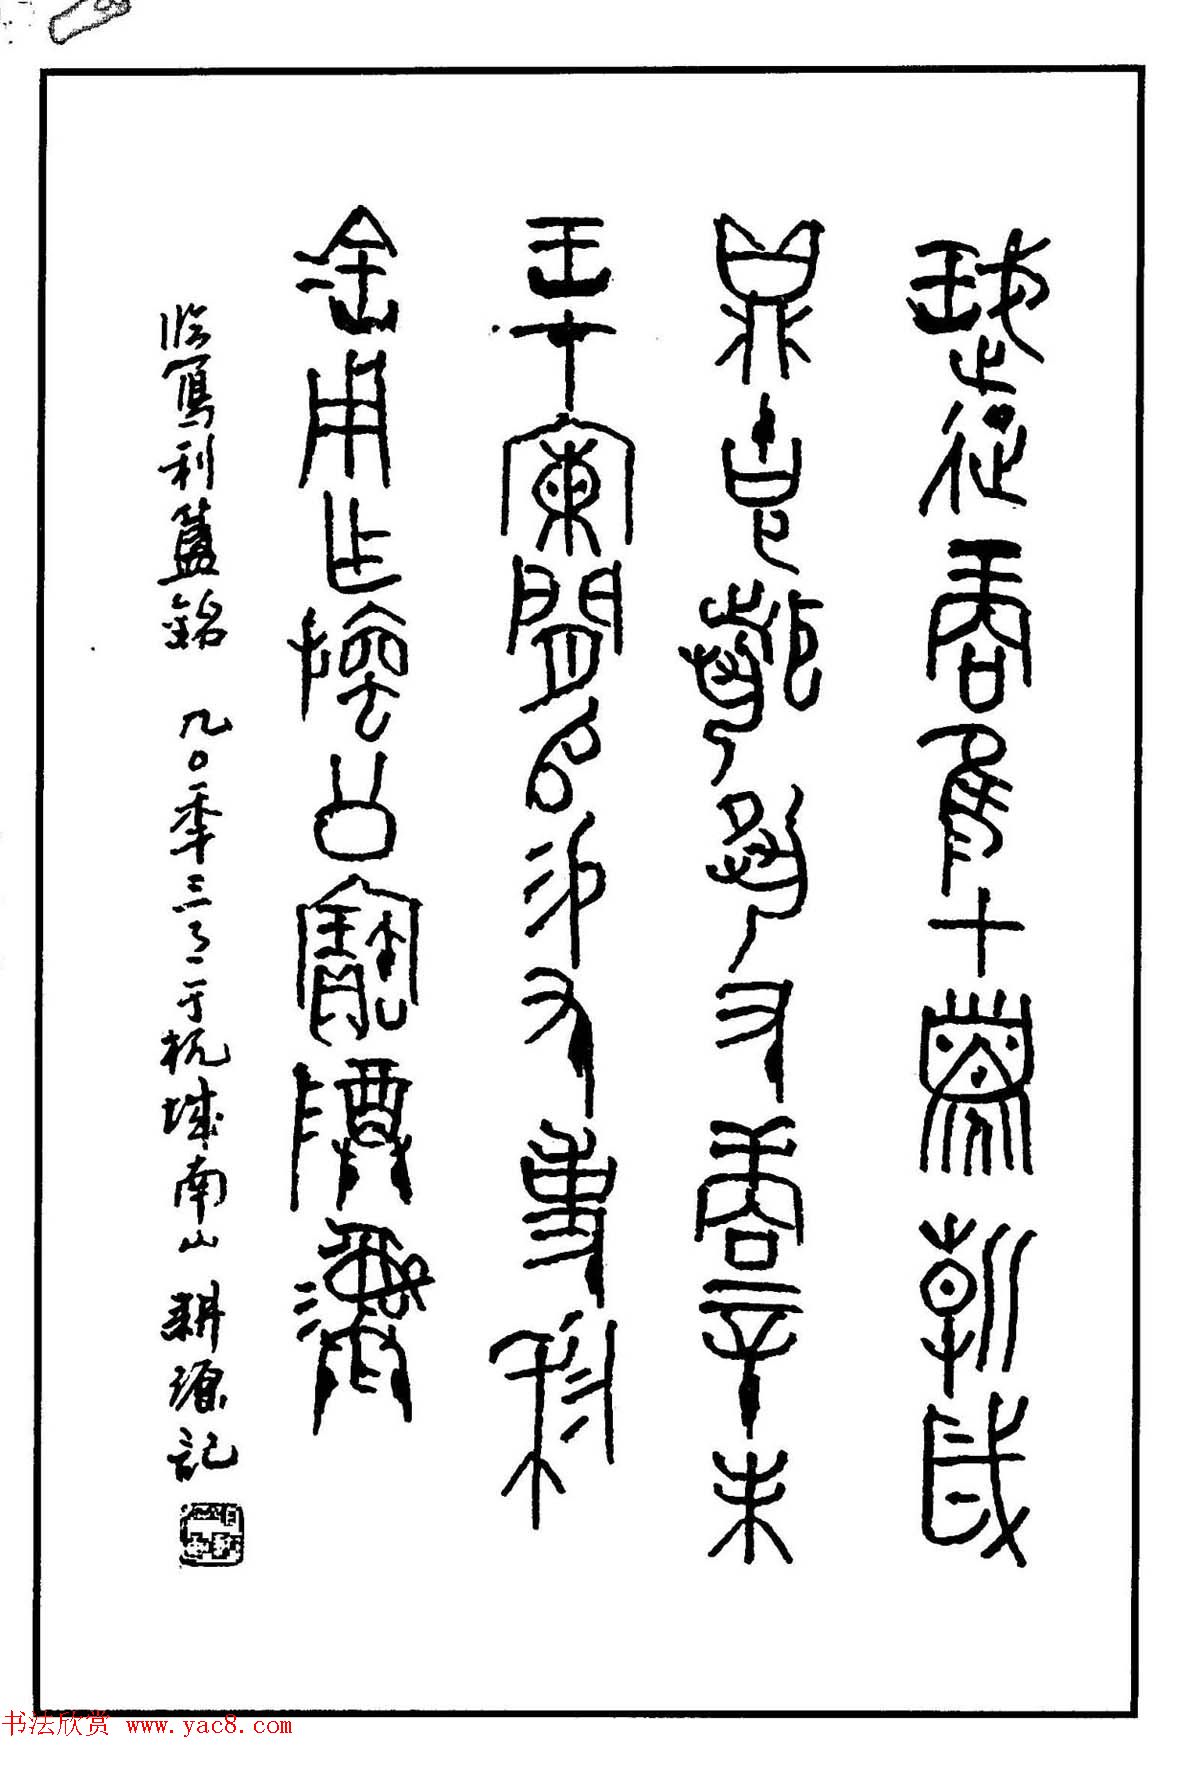 珷征商隹甲子朝歲
鼎克聞夙又商辛未
王才闌𠂤易又事利
金用乍𣄨公寶尊彝
临寫利簋銘 九〇年三月二于杭城南山 耕源記
书法欣赏 www.yac8.com